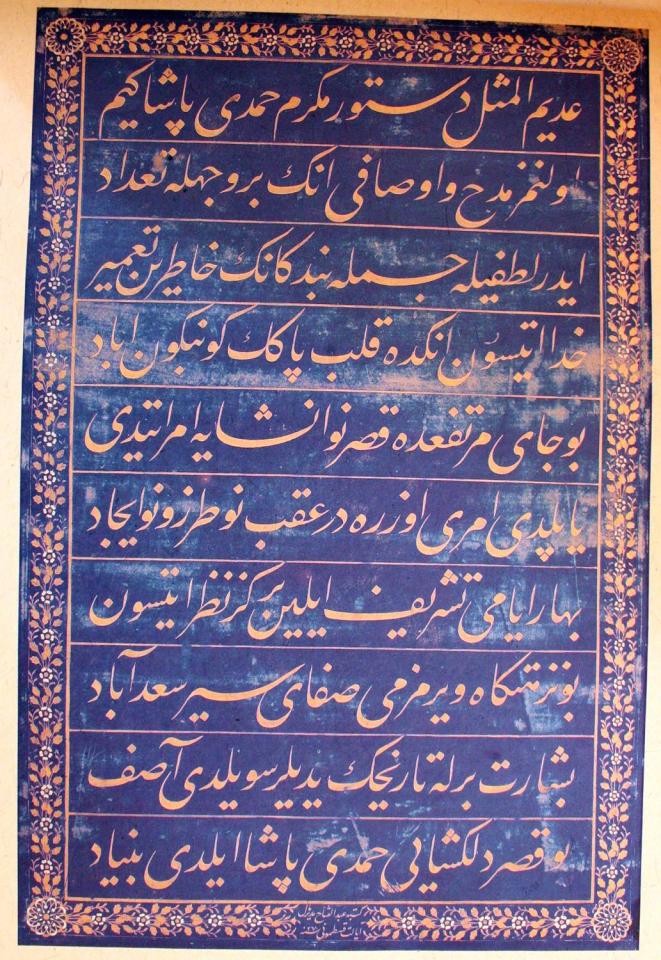 عديم المثل دستور مكرم حمدى پاشا كيم
اولنمز مدح و اوصافى انك بر وجهله تعداد
ايدر لطفيله جمله بندكانك خاطرين تعمير
خدا اتيسون انكده قلب پاكك كونبكون اباد
بو جاى مرتفعده قصر نو انشايه امر ايتدى
ياپلدى امرى اوزره در عقب نو طرز و نو ايجاد
بهار ايامى تشريف ايلين بركز نظر ايتسون
بو نزهتكاه ويرمزمى صفاى سير سعد آباد
بشارت برله تاريخك يديلر سويلدى آصف
بو قصر دلكشايى حمدى پاشا ايلدى بنياد